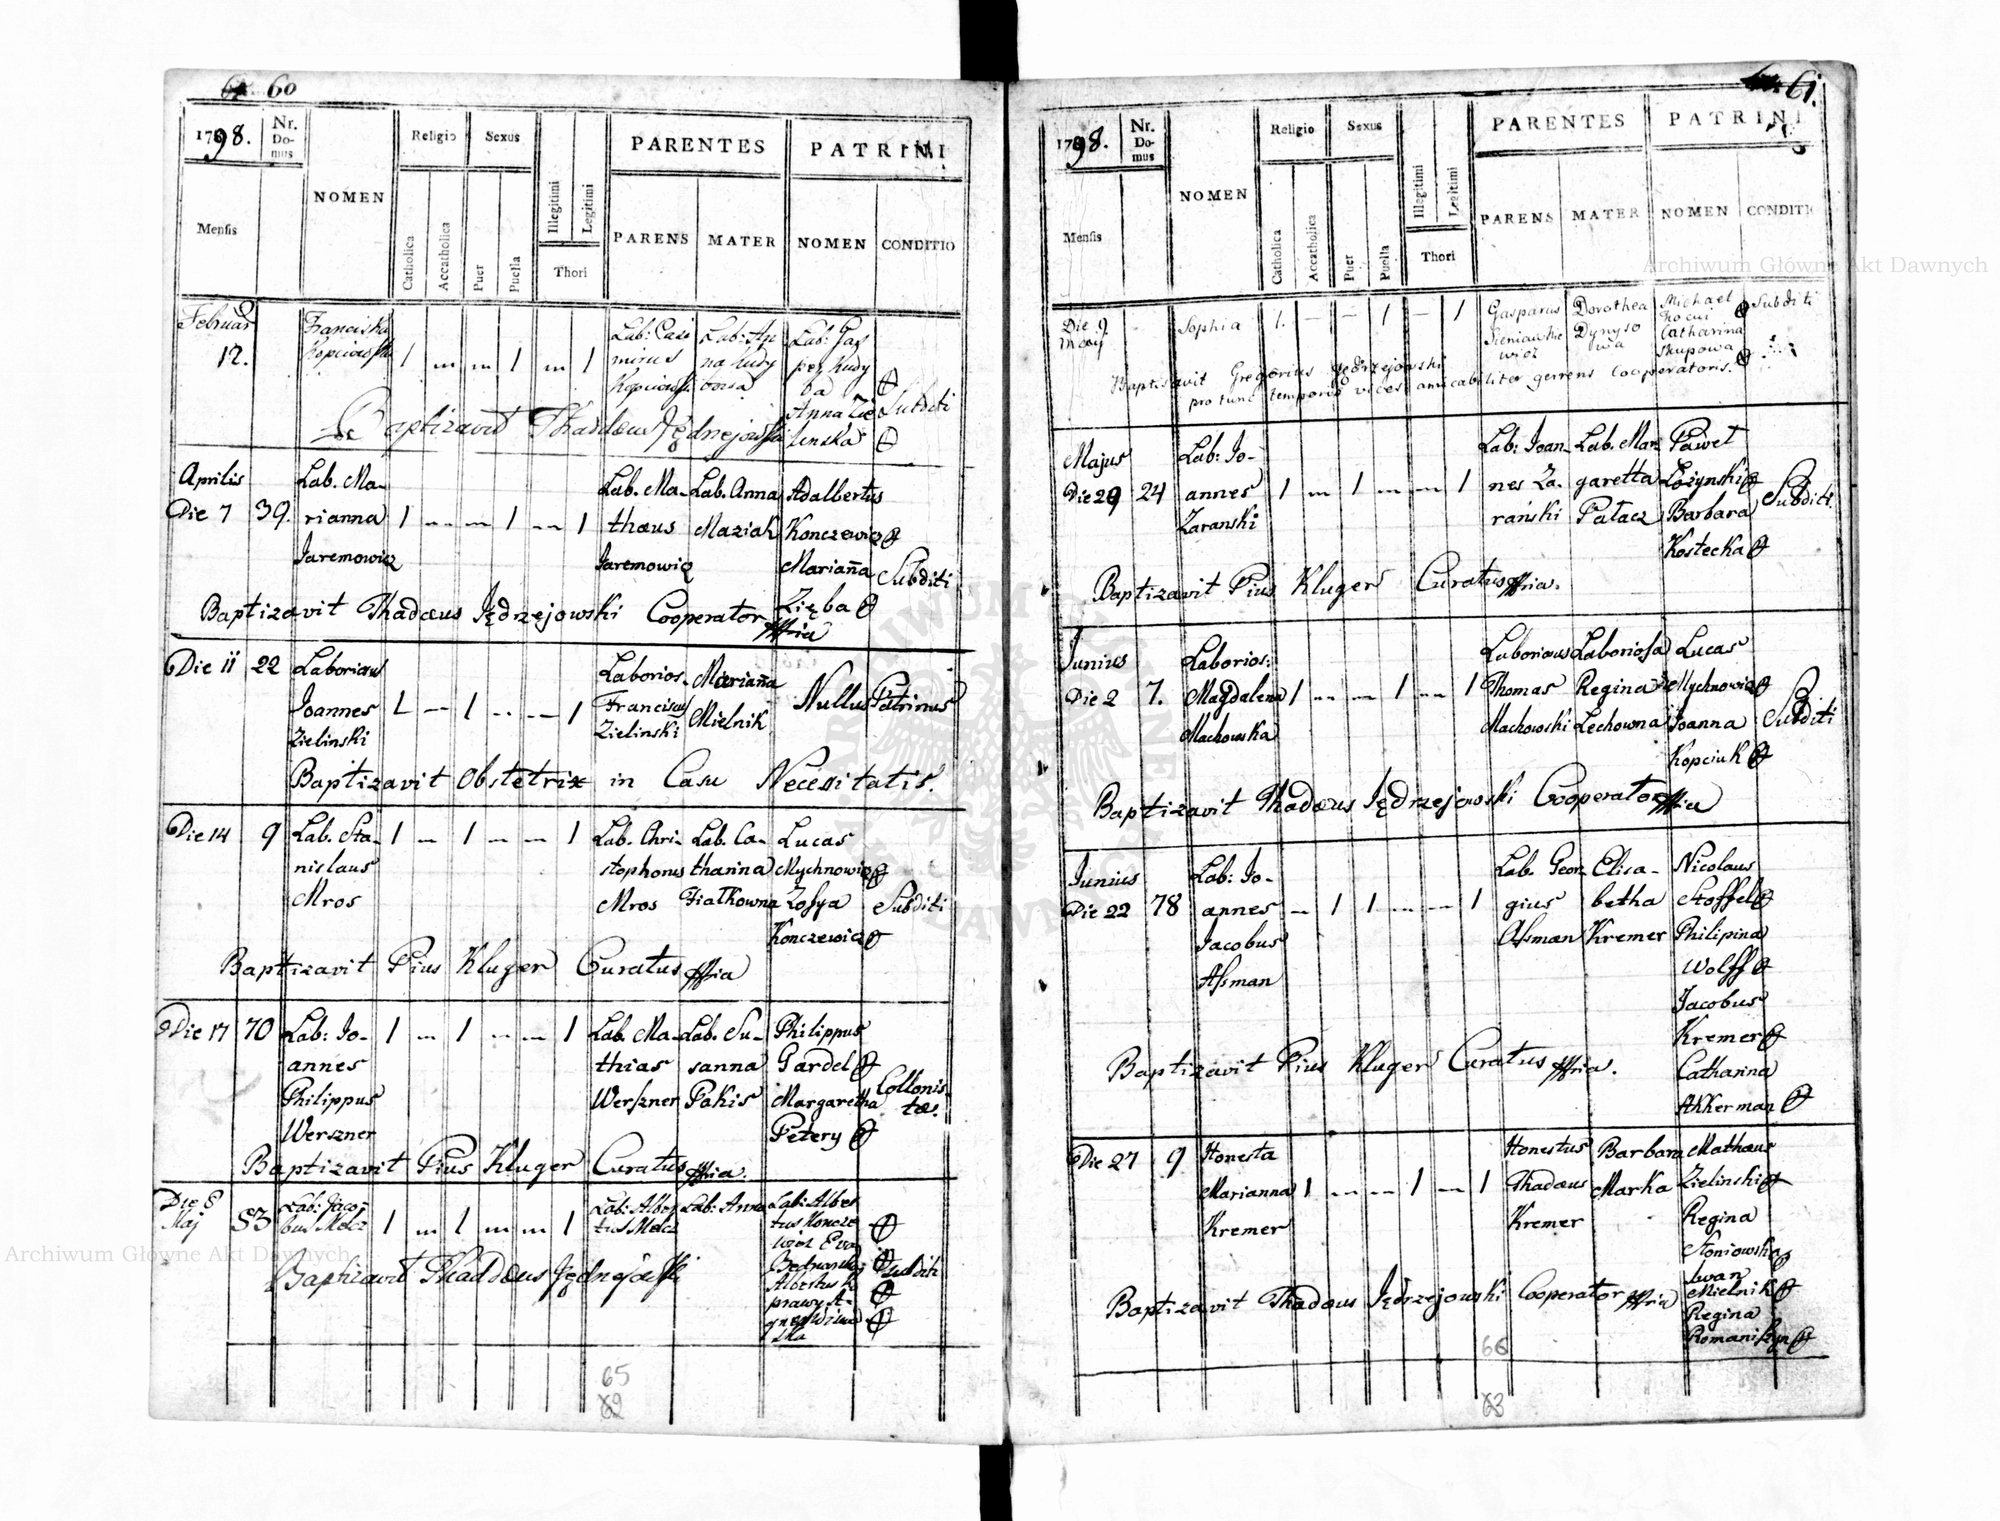 60
1798.
Nr. Domus
NOMEN
Religio
Sexus
Illegitimi
Legitimi
PARENTES
PATRINI
Mensis
Catholica
Accatholica
Puer
Puella
Thori
PARENS
MATER
NOMEN
CONDITIO
Februar 12.
Franciska Kopciowska
1 — — 1 — 1
Lab: Casimirus Kopciowski
Lab: Anna Rudybowa
Lab: Gasper Rudyba
Anna Zielenska
Subditi
Baptizavit Thaddæus Jędrzejowski
Aprilis Die 7
39.
Lab. Marianna Jaremowicz
1 — — 1 — 1
Lab. Mathæus Jaremowicz
Lab. Anna Maziak
Adalbertus Konczewicz
Marianna Zięba
Subditi
Baptizavit Thadæus Jędrzejowski Cooperator mpria
Die 11
22
Laboriosus Joannes Zielinski
1 — 1 — — 1
Laborios. Franciscus Zielinski
Marianna Mielnik
Nullus Patrinus
Baptizavit Obstetrix in Casu Necessitatis.
Die 14
9
Lab. Stanislaus Mros
1 — 1 — — 1
Lab. Christophorus Mros
Lab. Catharina Fiałkowna
Lucas Mychnowicz
Zofya Konczewicz
Subditi
Baptizavit Pius Kluger Curatus mpria
Die 17
70
Lab: Joannes Philippus Werszner
1 — 1 — — 1
Lab. Mathias Werszner
Lab. Susanna Pakis
Philippus Gardel
Margaretha Petery
Collonistæ.
Baptizavit Pius Kluger Curatus mpria.
Die 8 Maj
53
Lab: Jacobus Melcz
1 — 1 — — 1
Lab: Albertus Melcz
Lab: Anna
Lab: Albertus Konczewicz Eva
Subditi
Baptizavit Thaddæus Jędrzejowski
65
61.
1798.
Nr. Domus
NOMEN
Religio
Sexus
Illegitimi
Legitimi
PARENTES
PATRINI
Mensis
Catholica
Accatholica
Puer
Puella
Thori
PARENS
MATER
NOMEN
CONDITI
Die 9. May
Sophia
1. — — 1 — 1
Gasparus Sieniawkiewicz
Dorothea Dynysowa
Michael
Catharina Skupowa
Subditi
Baptisavit Gregorius Jędrzejowski
pro tunc temporis vices amicabiliter gerens Cooperatoris.
Majus Die 29
24
Lab: Joannes Zaranski
1 — 1 — — 1
Lab: Joannes Zarański
Lab. Margaretta Pałacz
Paweł Łożynski
Barbara Kostecka
Subditi
Baptizavit Pius Kluger Curatus mpria.
Junius Die 2
7.
Laborios: Magdalena Machowska
1 — — 1 — 1
Laboriosus Thomas Machowski
Laboriosa Regina Lechowna
Lucas Mychnowicz
Joanna Kopciuk
Subditi
Baptizavit Thadæus Jędrzejowski Cooperator mpria
Junius Die 22
78
Lab: Joannes Jacobus Assman
— 1 1 — — 1
Lab. Georgius Assman
Elisabetha Kremer
Nicolaus Stoffel
Philipina Wolff
Jacobus Kremer
Catharina Akkerman
Baptizavit Pius Kluger Curatus mpria.
Die 27
9
Honesta Marianna Kremer
1 — — 1 — 1
Honestus Thadæus Kremer
Barbara Marka
Mathæus Zielinski
Regina Słoniowska
Iwan Mielnik
Regina Romaniszyn
Baptizavit Thadæus Jędrzejowski Cooperator mpria
66
Archiwum Główne Akt Dawnych
Archiwum Główne Akt Dawnych